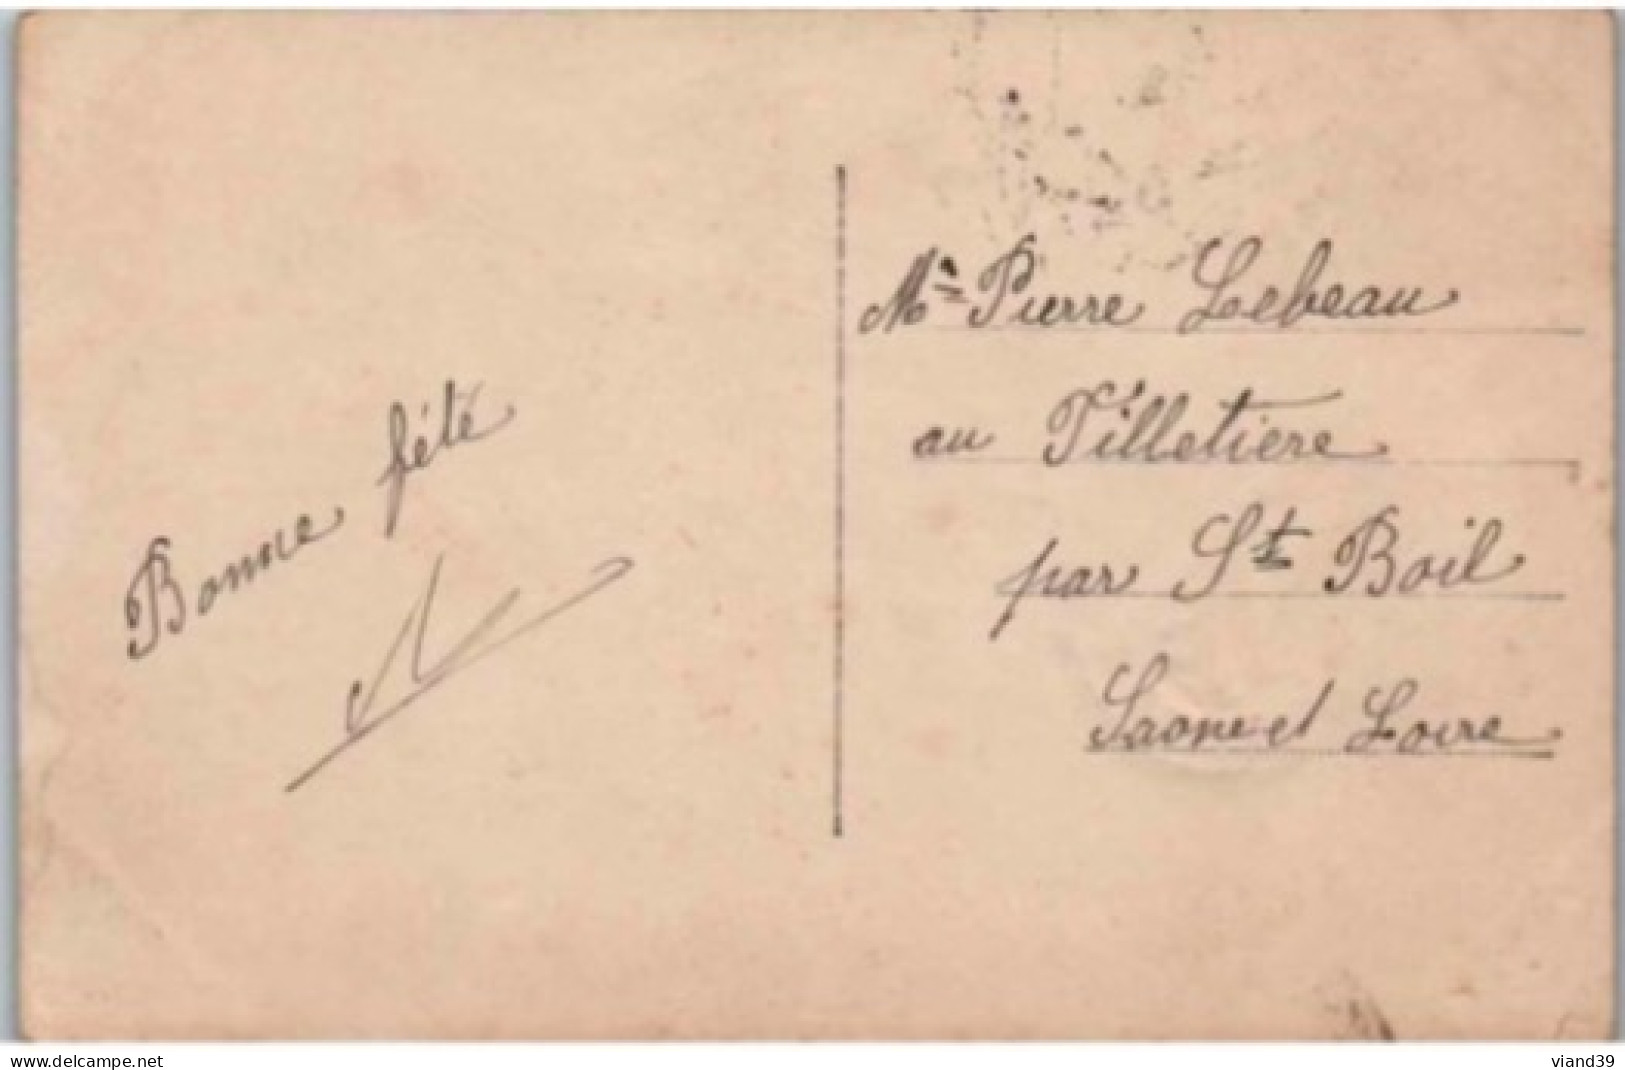 Bonne fété
Mr Pierre Lebeau
au Tilletiere
par St Boil
Saone et Loire
www.delcampe.net
viand39